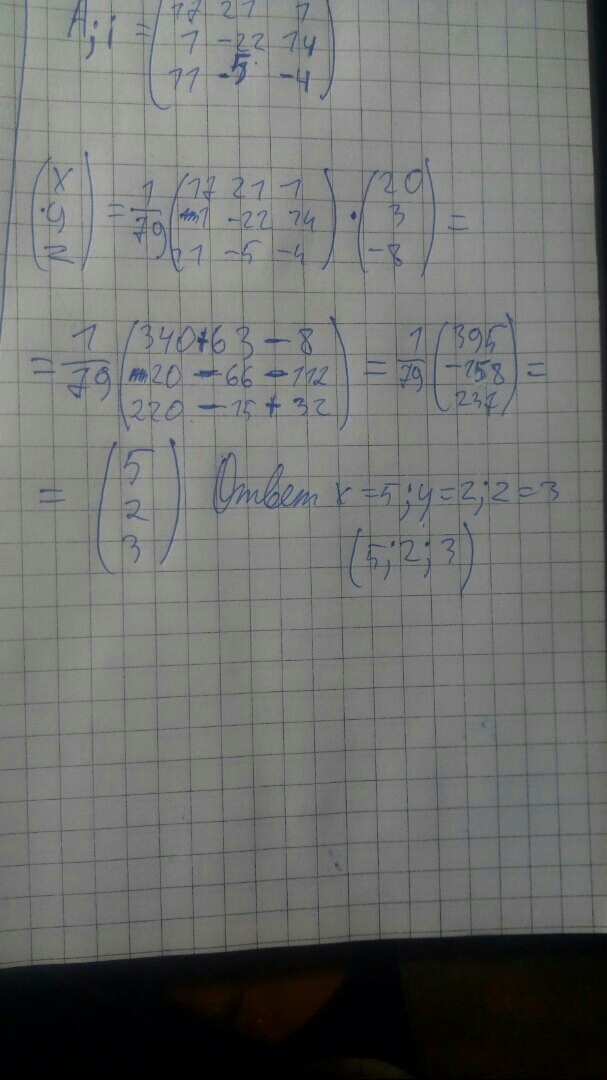 A_{ij} = (17 21 1
1 -22 14
11 -5 -4)
(x y z) = 1/79 (17 21 1
1 -22 14
11 -5 -4) · (20 3 -8) =
= 1/79 (340+63-8
20-66-112
220-15+32) = 1/79 (395 -158 237) =
= (5 2 3) Ответ x=5; y=2; z=3
(5; 2; 3)